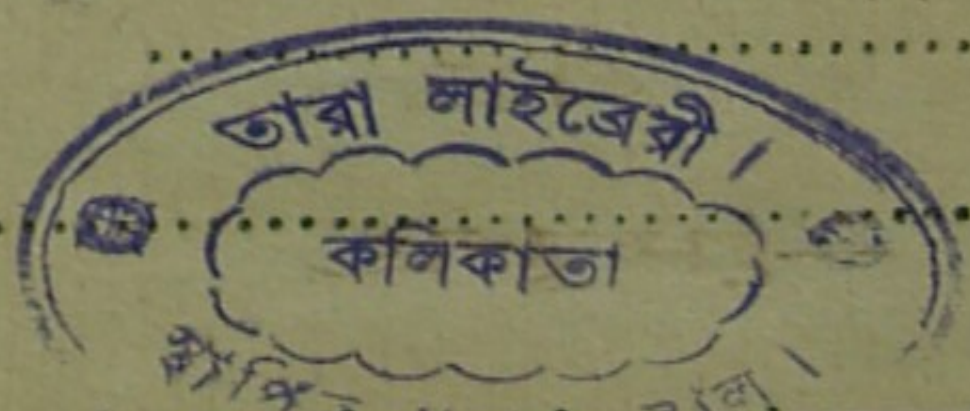 তারা লাইব্রেরী।
কলিকাতা